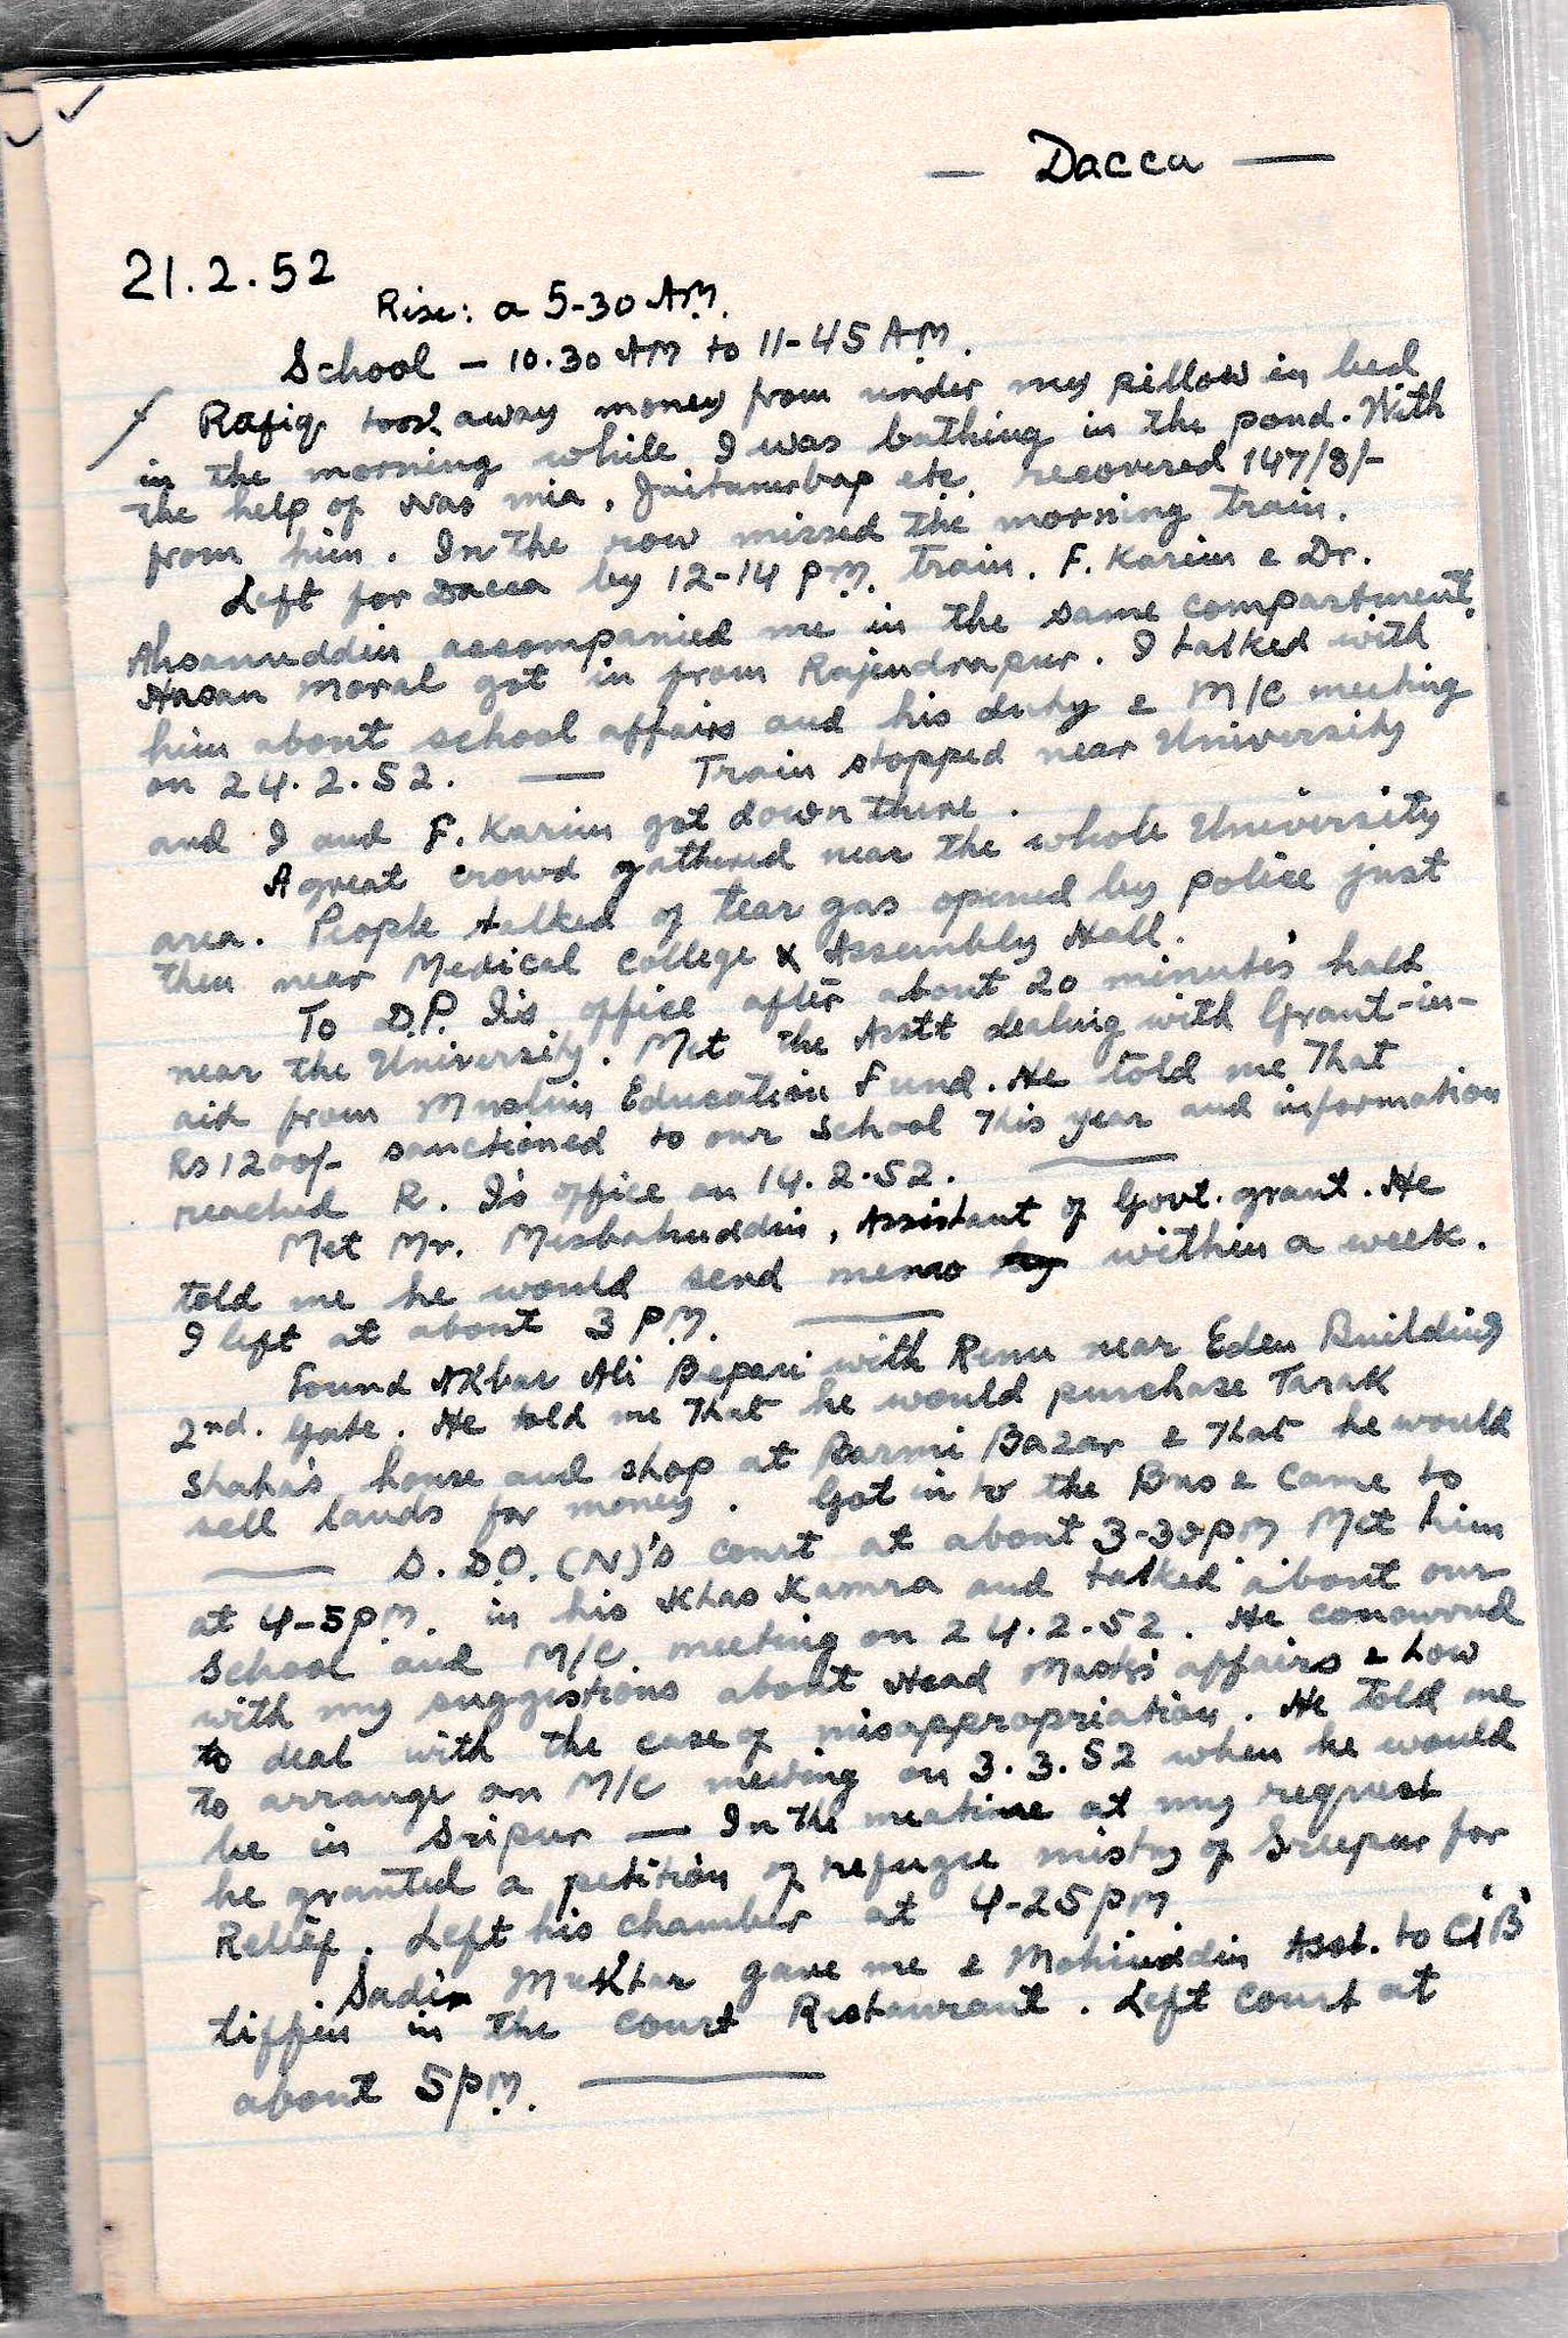 — Dacca —
21.2.52
Rise: a 5-30 AM.
School — 10.30 AM to 11-45 AM.
Rafiq took away money from under my pillow in bed
in the morning while I was bathing in the pond. With
the help of Nas mia, etc. recovered 147/8/-
from him. In the row missed the morning train.
Left for Dacca by 12-14 PM. train. F. Karim & Dr.
Ahsanuddin accompanied me in the same compartment.
Hasan Moral got in from Rajendrapur. I talked with
him about school affairs and his duty & M/C meeting
on 24.2.52. — Train stopped near University
and I and F. Karim got down there.
A great crowd gathered near the whole University
area. People talked of tear gas opened by police just
then near Medical College & Assembly Hall.
To D.P.I's office after about 20 minutes' halt
near the University. Met the Asstt dealing with Grant-in-
aid from Muslim Education Fund. He told me that
Rs 1200/- sanctioned to our School this year and information
reached R. I's office on 14.2.52. —
Met Mr. Misbahuddin, Assistant of Govt. grant. He
told me he would send memo within a week.
I left at about 3 PM. —
Found Akbar Ali Bepari with Renu near Eden Building
2nd. Gate. He told me that he would purchase Tarak
Shaha's house and shop at Barmi Bazar & that he would
sell lands for money. Got in to the Bus & came to
— S.DO.(N)'s court at about 3-30 PM Met him
at 4-5 PM. in his Khas Kamra and talked about our
School and M/C. meeting on 24.2.52. He conowred
with my suggestions about Head Master's affairs & how
to deal with the case of misappropriation. He told me
to arrange an M/C meeting on 3.3.52 when he would
be in Sripur — In the meatime at my request
he granted a petition of refugee mistry of Sreepur for
Relief. Left his chamber at 4-25 PM
Sadir Mukhtar gave me & Mohiuddin Asst. to CIB
tiffin in the court Restaurant. Left court at
about 5 PM. —